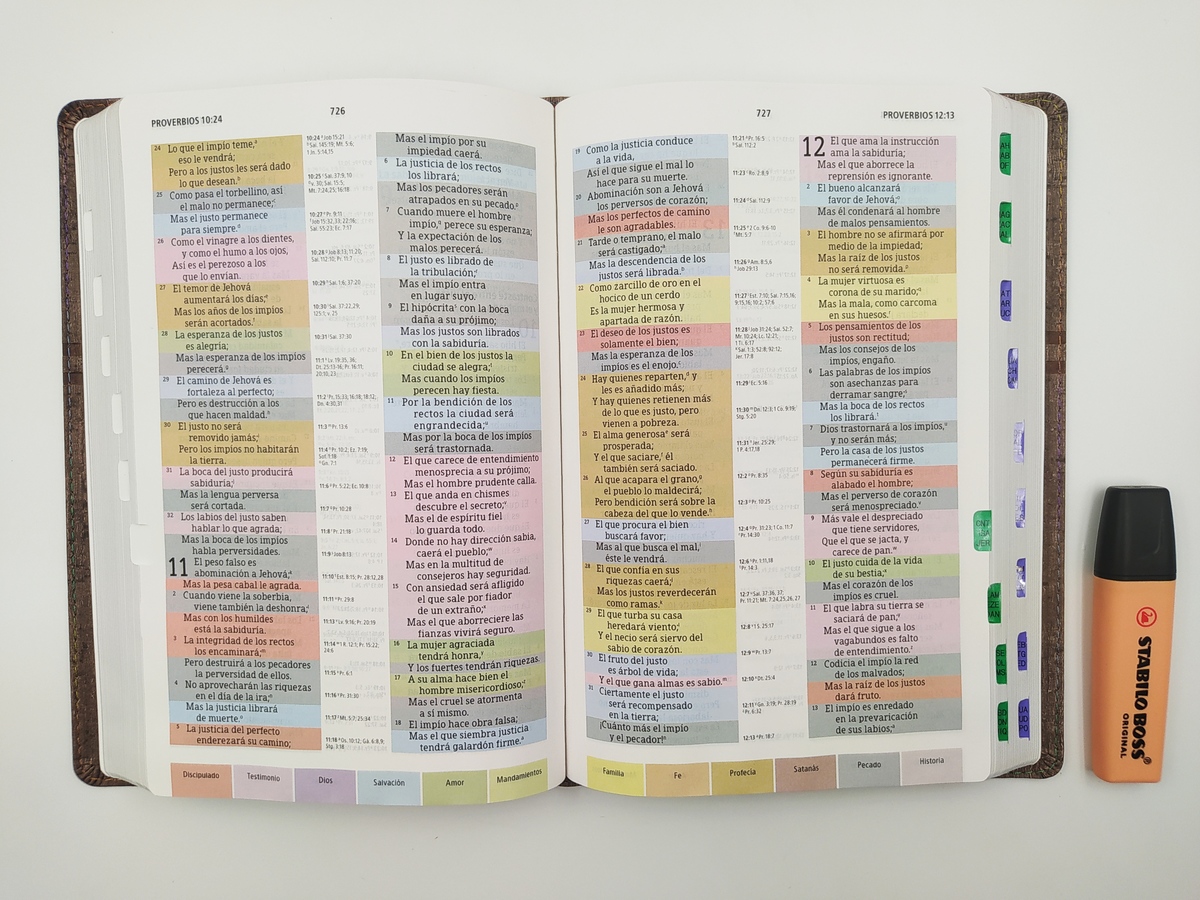 PROVERBIOS 10:24
726
24 Lo que el impío teme,
eso le vendrá;
Pero a los justos les será dado
lo que desean.
25 Como pasa el torbellino, así
el malo no permanece;
Mas el justo permanece
para siempre.
26 Como el vinagre a los dientes,
y como el humo a los ojos,
Así es el perezoso a los
que lo envían.
27 El temor de Jehová
aumentará los días;
Mas los años de los impíos
serán acortados.
28 La esperanza de los justos
es alegría;
Mas la esperanza de los impíos
perecerá.
29 El camino de Jehová es
fortaleza al perfecto;
Pero es destrucción a los
que hacen maldad.
30 El justo no será
removido jamás;
Pero los impíos no habitarán
la tierra.
31 La boca del justo producirá
sabiduría;
Mas la lengua perversa
será cortada.
32 Los labios del justo saben
hablar lo que agrada;
Mas la boca de los impíos
habla perversidades.
11 El peso falso es
abominación a Jehová;
Mas la pesa cabal le agrada.
2 Cuando viene la soberbia,
viene también la deshonra;
Mas con los humildes
está la sabiduría.
3 La integridad de los rectos
los encaminará;
Pero destruirá a los pecadores
la perversidad de ellos.
4 No aprovecharán las riquezas
en el día de la ira;
Mas la justicia librará
de muerte.
5 La justicia del perfecto
enderezará su camino;
Mas el impío por su
impiedad caerá.
6 La justicia de los rectos
los librará;
Mas los pecadores serán
atrapados en su pecado.
7 Cuando muere el hombre
impío, perece su esperanza;
Y la expectación de los
malos perecerá.
8 El justo es librado de
la tribulación;
Mas el impío entra
en lugar suyo.
9 El hipócrita con la boca
daña a su prójimo;
Mas los justos son librados
con la sabiduría.
10 En el bien de los justos la
ciudad se alegra;
Mas cuando los impíos
perecen hay fiesta.
11 Por la bendición de los
rectos la ciudad será
engrandecida;
Mas por la boca de los impíos
será trastornada.
12 El que carece de entendimiento
menosprecia a su prójimo;
Mas el hombre prudente calla.
13 El que anda en chismes
descubre el secreto;
Mas el de espíritu fiel
lo guarda todo.
14 Donde no hay dirección sabia,
caerá el pueblo;
Mas en la multitud de
consejeros hay seguridad.
15 Con ansiedad será afligido
el que sale por fiador
de un extraño;
Mas el que aborreciere las
fianzas vivirá seguro.
16 La mujer agraciada
tendrá honra,
Y los fuertes tendrán riquezas.
17 A su alma hace bien el
hombre misericordioso;
Mas el cruel se atormenta
a sí mismo.
18 El impío hace obra falsa;
Mas el que siembra justicia
tendrá galardón firme.
Discipulado
Testimonio
Dios
Salvación
Amor
Mandamientos
727
PROVERBIOS 12:13
19 Como la justicia conduce
a la vida,
Así el que sigue el mal lo
hace para su muerte.
20 Abominación son a Jehová
los perversos de corazón;
Mas los perfectos de camino
le son agradables.
21 Tarde o temprano, el malo
será castigado;
Mas la descendencia de los
justos será librada.
22 Como zarcillo de oro en el
hocico de un cerdo
Es la mujer hermosa y
apartada de razón.
23 El deseo de los justos es
solamente el bien;
Mas la esperanza de los
impíos es el enojo.
24 Hay quienes reparten, y
les es añadido más;
Y hay quienes retienen más
de lo que es justo, pero
vienen a pobreza.
25 El alma generosa será
prosperada;
Y el que saciare, él
también será saciado.
26 Al que acapara el grano,
el pueblo lo maldecirá;
Pero bendición será sobre la
cabeza del que lo vende.
27 El que procura el bien
buscará favor;
Mas al que busca el mal,
éste le vendrá.
28 El que confía en sus
riquezas caerá;
Mas los justos reverdecerán
como ramas.
29 El que turba su casa
heredará viento;
Y el necio será siervo del
sabio de corazón.
30 El fruto del justo
es árbol de vida;
Y el que gana almas es sabio.
31 Ciertamente el justo
será recompensado
en la tierra;
¡Cuánto más el impío
y el pecador!
12 El que ama la instrucción
ama la sabiduría;
Mas el que aborrece la
reprensión es ignorante.
2 El bueno alcanzará
favor de Jehová;
Mas él condenará al hombre
de malos pensamientos.
3 El hombre no se afirmará por
medio de la impiedad;
Mas la raíz de los justos
no será removida.
4 La mujer virtuosa es
corona de su marido;
Mas la mala, como carcoma
en sus huesos.
5 Los pensamientos de los
justos son rectitud;
Mas los consejos de los
impíos, engaño.
6 Las palabras de los impíos
son asechanzas para
derramar sangre;
Mas la boca de los rectos
los librará.
7 Dios trastornará a los impíos,
y no serán más;
Pero la casa de los justos
permanecerá firme.
8 Según su sabiduría es
alabado el hombre;
Mas el perverso de corazón
será menospreciado.
9 Más vale el despreciado
que tiene servidores,
Que el que se jacta, y
carece de pan.
10 El justo cuida de la vida
de su bestia;
Mas el corazón de los
impíos es cruel.
11 El que labra su tierra se
saciará de pan;
Mas el que sigue a los
vagabundos es falto
de entendimiento.
12 Codicia el impío la red
de los malvados;
Mas la raíz de los justos
dará fruto.
13 El impío es enredado
en la prevaricación
de sus labios;
Familia
Fe
Profecía
Satanás
Pecado
Historia
STABILO BOSS®
ORIGINAL